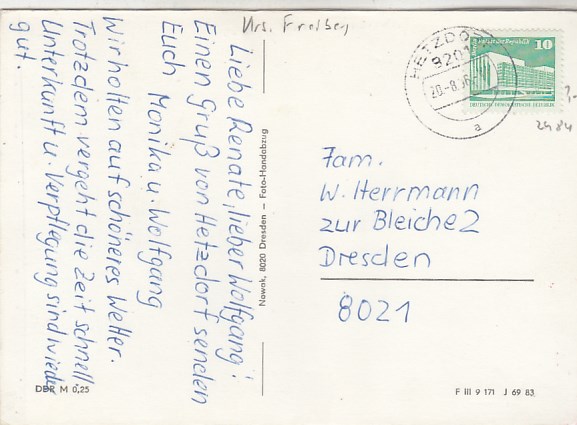 Krs. Freiberg
Liebe Renate, lieber Wolfgang!
Einen Gruß von Hetzdorf senden
Euch Monika u. Wolfgang
Wir hoffen auf schöneres Wetter.
Trotzdem vergeht die Zeit schnell
Unterkunft u. Verpflegung sind wieder
gut.
Nowak, 8020 Dresden – Foto-Handabzug
HETZDO
9201
20.-8.86
a
10
DEUTSCHE DEMOKRATISCHE REPUBLIK
2484
Fam.
W. Herrmann
zur Bleiche 2
Dresden
8021
DDR M 0,25
F III 9 171 J 69 83